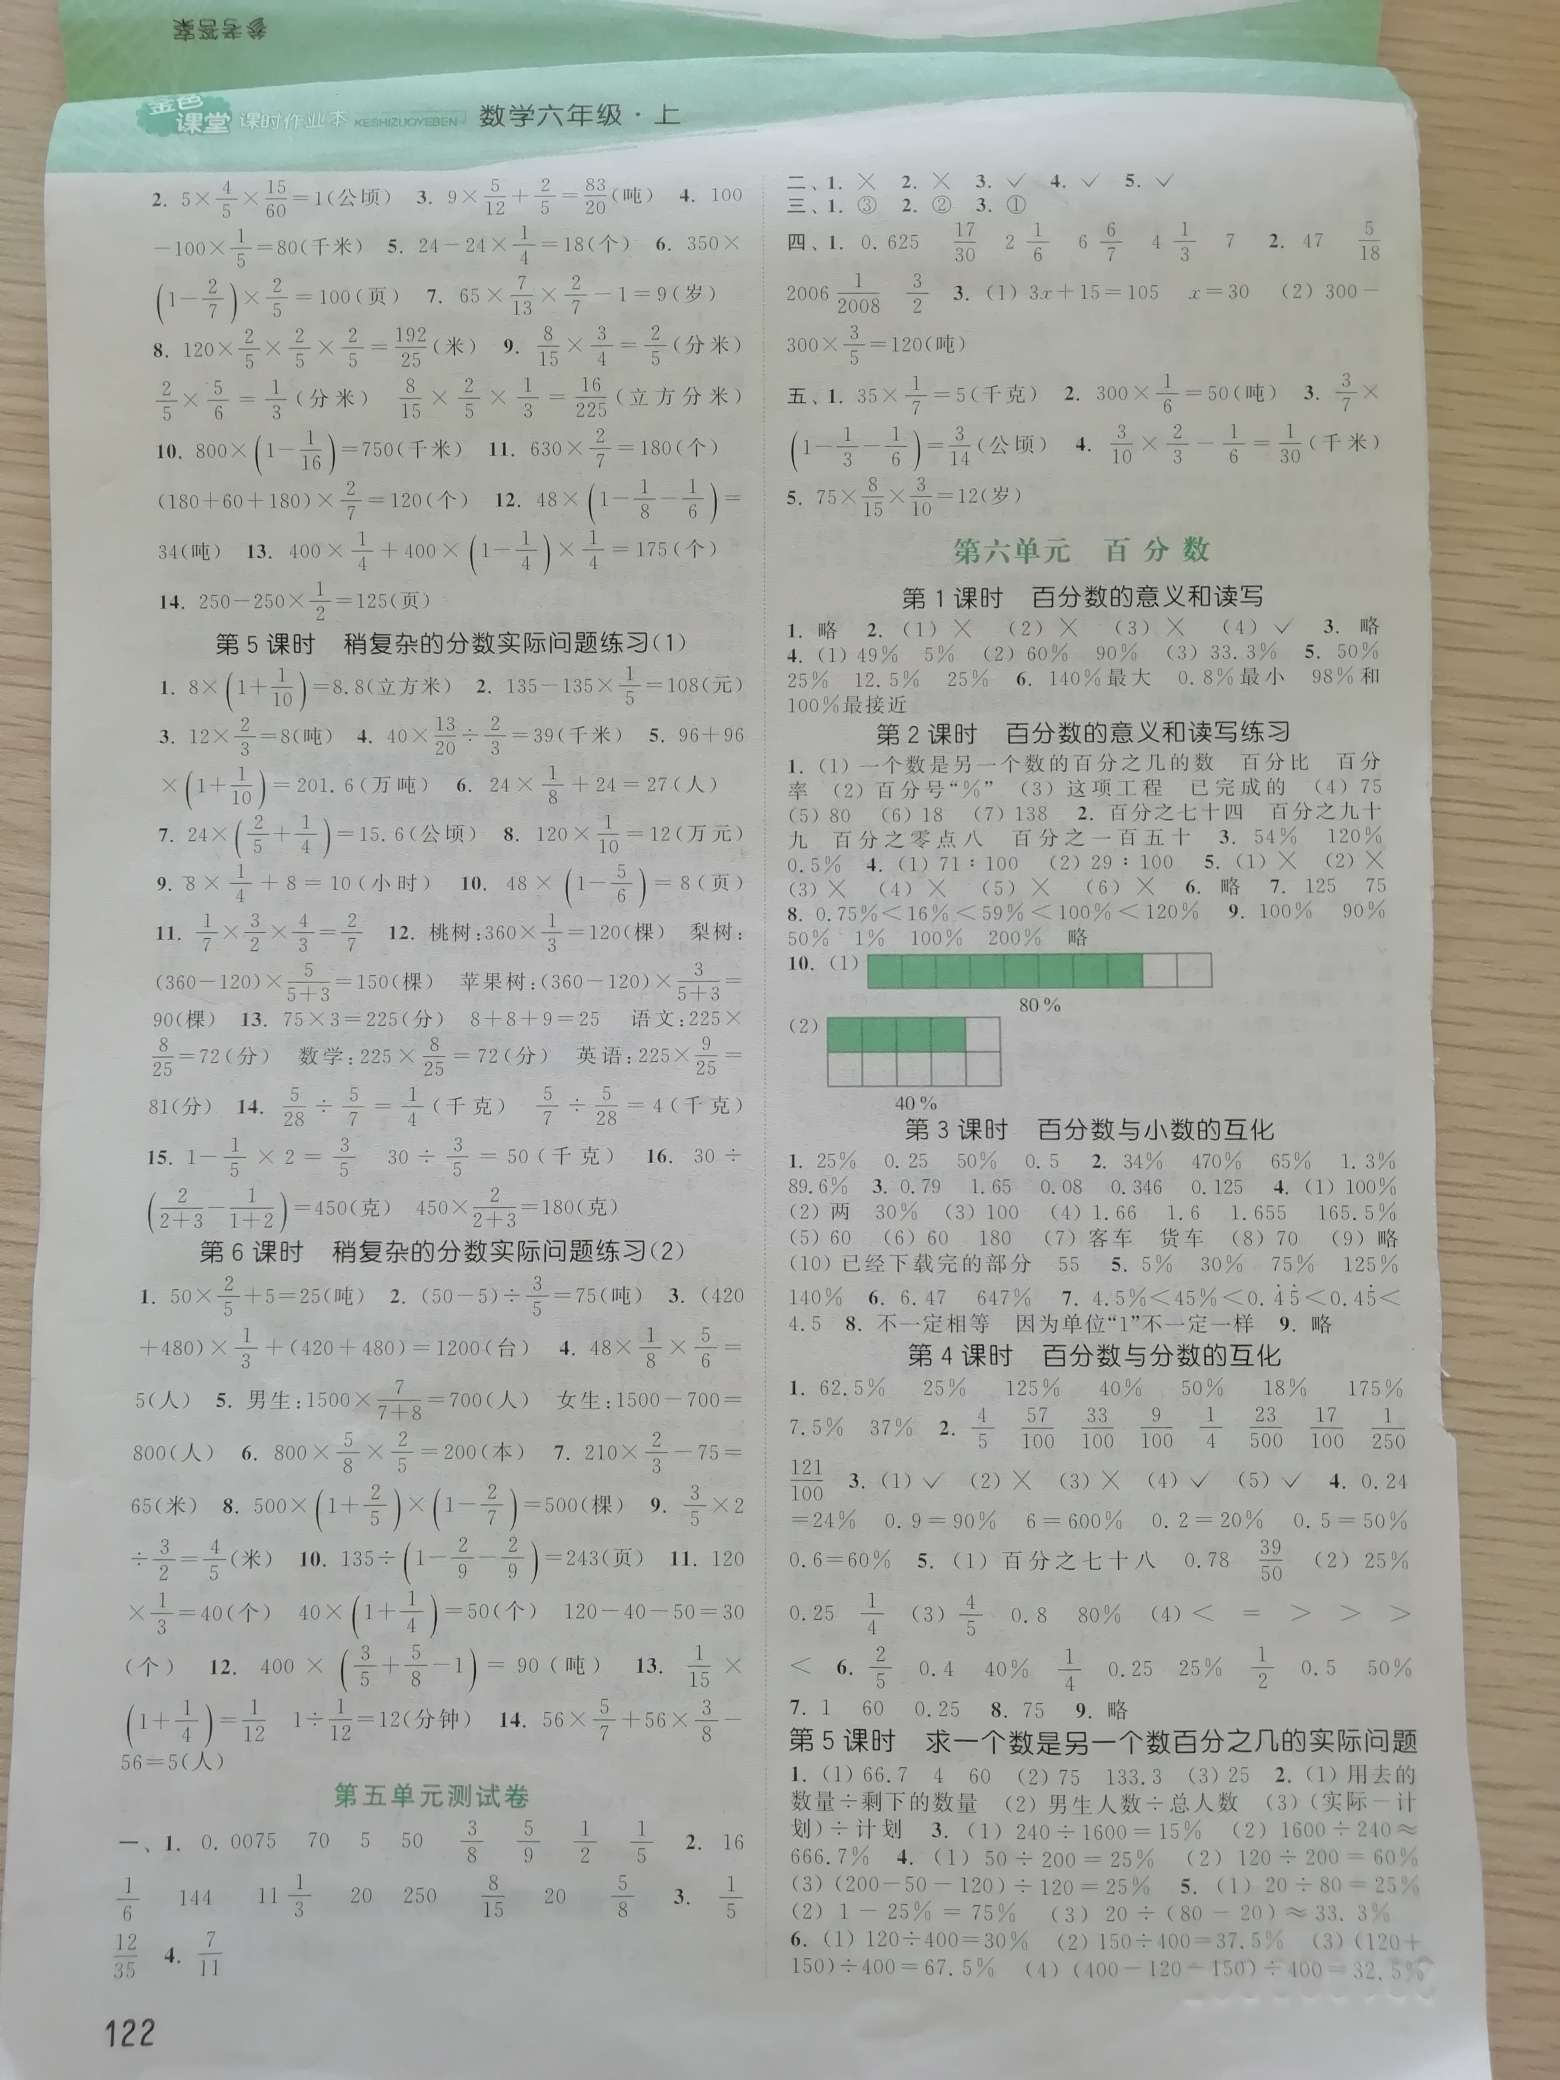 参考答案
金色
课堂 课时作业本 KESHIZUOYEBEN 数学六年级·上
2. 5×4/5×15/60=1(公顷) 3. 9×5/12+2/5=83/20(吨) 4. 100
-100×1/5=80(千米) 5. 24-24×1/4=18(个) 6. 350×
(1-2/7)×2/5=100(页) 7. 65×7/13×2/7-1=9(岁)
8. 120×2/5×2/5×2/5=192/25(米) 9. 8/15×3/4=2/5(分米)
2/5×5/6=1/3(分米) 8/15×2/5×1/3=16/225(立方分米)
10. 800×(1-1/16)=750(千米) 11. 630×2/7=180(个)
(180+60+180)×2/7=120(个) 12. 48×(1-1/8-1/6)=
34(吨) 13. 400×1/4+400×(1-1/4)×1/4=175(个)
14. 250-250×1/2=125(页)
第5课时 稍复杂的分数实际问题练习(1)
1. 8×(1+1/10)=8.8(立方米) 2. 135-135×1/5=108(元)
3. 12×2/3=8(吨) 4. 40×13/20÷2/3=39(千米) 5. 96+96
×(1+1/10)=201.6(万吨) 6. 24×1/8+24=27(人)
7. 24×(2/5+1/4)=15.6(公顷) 8. 120×1/10=12(万元)
9. 8×1/4+8=10(小时) 10. 48×(1-5/6)=8(页)
11. 1/7×3/2×4/3=2/7 12. 桃树:360×1/3=120(棵) 梨树:
(360-120)×5/5+3=150(棵) 苹果树:(360-120)×3/5+3=
90(棵) 13. 75×3=225(分) 8+8+9=25 语文:225×
8/25=72(分) 数学:225×8/25=72(分) 英语:225×9/25=
81(分) 14. 5/28÷5/7=1/4(千克) 5/7÷5/28=4(千克)
15. 1-1/5×2=3/5 30÷3/5=50(千克) 16. 30÷
(2/2+3-1/1+2)=450(克) 450×2/2+3=180(克)
第6课时 稍复杂的分数实际问题练习(2)
1. 50×2/5+5=25(吨) 2. (50-5)÷3/5=75(吨) 3. (420
+480)×1/3+(420+480)=1200(台) 4. 48×1/8×5/6=
5(人) 5. 男生:1500×7/7+8=700(人) 女生:1500-700=
800(人) 6. 800×5/8×2/5=200(本) 7. 210×2/3-75=
65(米) 8. 500×(1+2/5)×(1-2/7)=500(棵) 9. 3/5×2
÷3/2=4/5(米) 10. 135÷(1-2/9-2/9)=243(页) 11. 120
×1/3=40(个) 40×(1+1/4)=50(个) 120-40-50=30
(个) 12. 400×(3/5+5/8-1)=90(吨) 13. 1/15×
(1+1/4)=1/12 1÷1/12=12(分钟) 14. 56×5/7+56×3/8-
56=5(人)
第五单元测试卷
一、1. 0.0075 70 5 50 3/8 5/9 1/2 1/5 2. 16
1/6 144 11 1/3 20 250 8/15 20 5/8 3. 1/5
12/35 4. 7/11
122
二、1. × 2. × 3. ✓ 4. ✓ 5. ✓
三、1. ③ 2. ② 3. ①
四、1. 0.625 17/30 2 1/6 6 6/7 4 1/3 7 2. 47 5/18
2006 1/2008 3/2 3. (1)3x+15=105 x=30 (2)300-
300×3/5=120(吨)
五、1. 35×1/7=5(千克) 2. 300×1/6=50(吨) 3. 3/7×
(1-1/3-1/6)=3/14(公顷) 4. 3/10×2/3-1/6=1/30(千米)
5. 75×8/15×3/10=12(岁)
第六单元 百分数
第1课时 百分数的意义和读写
1. 略 2. (1)× (2)× (3)× (4)✓ 3. 略
4. (1)49% 5% (2)60% 90% (3)33.3% 5. 50%
25% 12.5% 25% 6. 140%最大 0.8%最小 98%和
100%最接近
第2课时 百分数的意义和读写练习
1. (1)一个数是另一个数的百分之几的数 百分比 百分
率 (2)百分号“%” (3)这项工程 已完成的 (4)75
(5)80 (6)18 (7)138 2. 百分之七十四 百分之九十
九 百分之零点八 百分之一百五十 3. 54% 120%
0.5% 4. (1)71∶100 (2)29∶100 5. (1)× (2)×
(3)× (4)× (5)× (6)× 6. 略 7. 125 75
8. 0.75%<16%<59%<100%<120% 9. 100% 90%
50% 1% 100% 200% 略
10. (1)
80%
(2)
40%
第3课时 百分数与小数的互化
1. 25% 0.25 50% 0.5 2. 34% 470% 65% 1.3%
89.6% 3. 0.79 1.65 0.08 0.346 0.125 4. (1)100%
(2)两 30% (3)100 (4)1.66 1.6 1.655 165.5%
(5)60 (6)60 180 (7)客车 货车 (8)70 (9)略
(10)已经下载完的部分 55 5. 5% 30% 75% 125%
140% 6. 6.47 647% 7. 4.5%<45%<0.4̇5̇<0.45̇<
4.5 8. 不一定相等 因为单位“1”不一定一样 9. 略
第4课时 百分数与分数的互化
1. 62.5% 25% 125% 40% 50% 18% 175%
7.5% 37% 2. 4/5 57/100 33/100 9/100 1/4 23/500 17/100 1/250
121/100 3. (1)✓ (2)× (3)× (4)✓ (5)✓ 4. 0.24
=24% 0.9=90% 6=600% 0.2=20% 0.5=50%
0.6=60% 5. (1)百分之七十八 0.78 39/50 (2)25%
0.25 1/4 (3)4/5 0.8 80% (4)< = > > >
< 6. 2/5 0.4 40% 1/4 0.25 25% 1/2 0.5 50%
7. 1 60 0.25 8. 75 9. 略
第5课时 求一个数是另一个数百分之几的实际问题
1. (1)66.7 4 60 (2)75 133.3 (3)25 2. (1)用去的
数量÷剩下的数量 (2)男生人数÷总人数 (3)(实际-计
划)÷计划 3. (1)240÷1600=15% (2)1600÷240≈
666.7% 4. (1)50÷200=25% (2)120÷200=60%
(3)(200-50-120)÷120=25% 5. (1)20÷80=25%
(2)1-25%=75% (3)20÷(80-20)≈33.3%
6. (1)120÷400=30% (2)150÷400=37.5% (3)(120+
150)÷400=67.5% (4)(400-120-150)÷400=32.5%